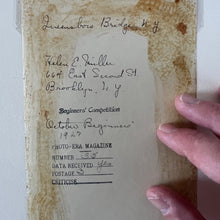 Queensboro Bridge, N.Y
Helen E. Miller
664 East Second St.
Brooklyn, N.Y
Beginners' Competition
October Beginners'
1927
PHOTO-ERA MAGAZINE
NUMBER 30
DATA RECEIVED Yes
POSTAGE
CRITICISE